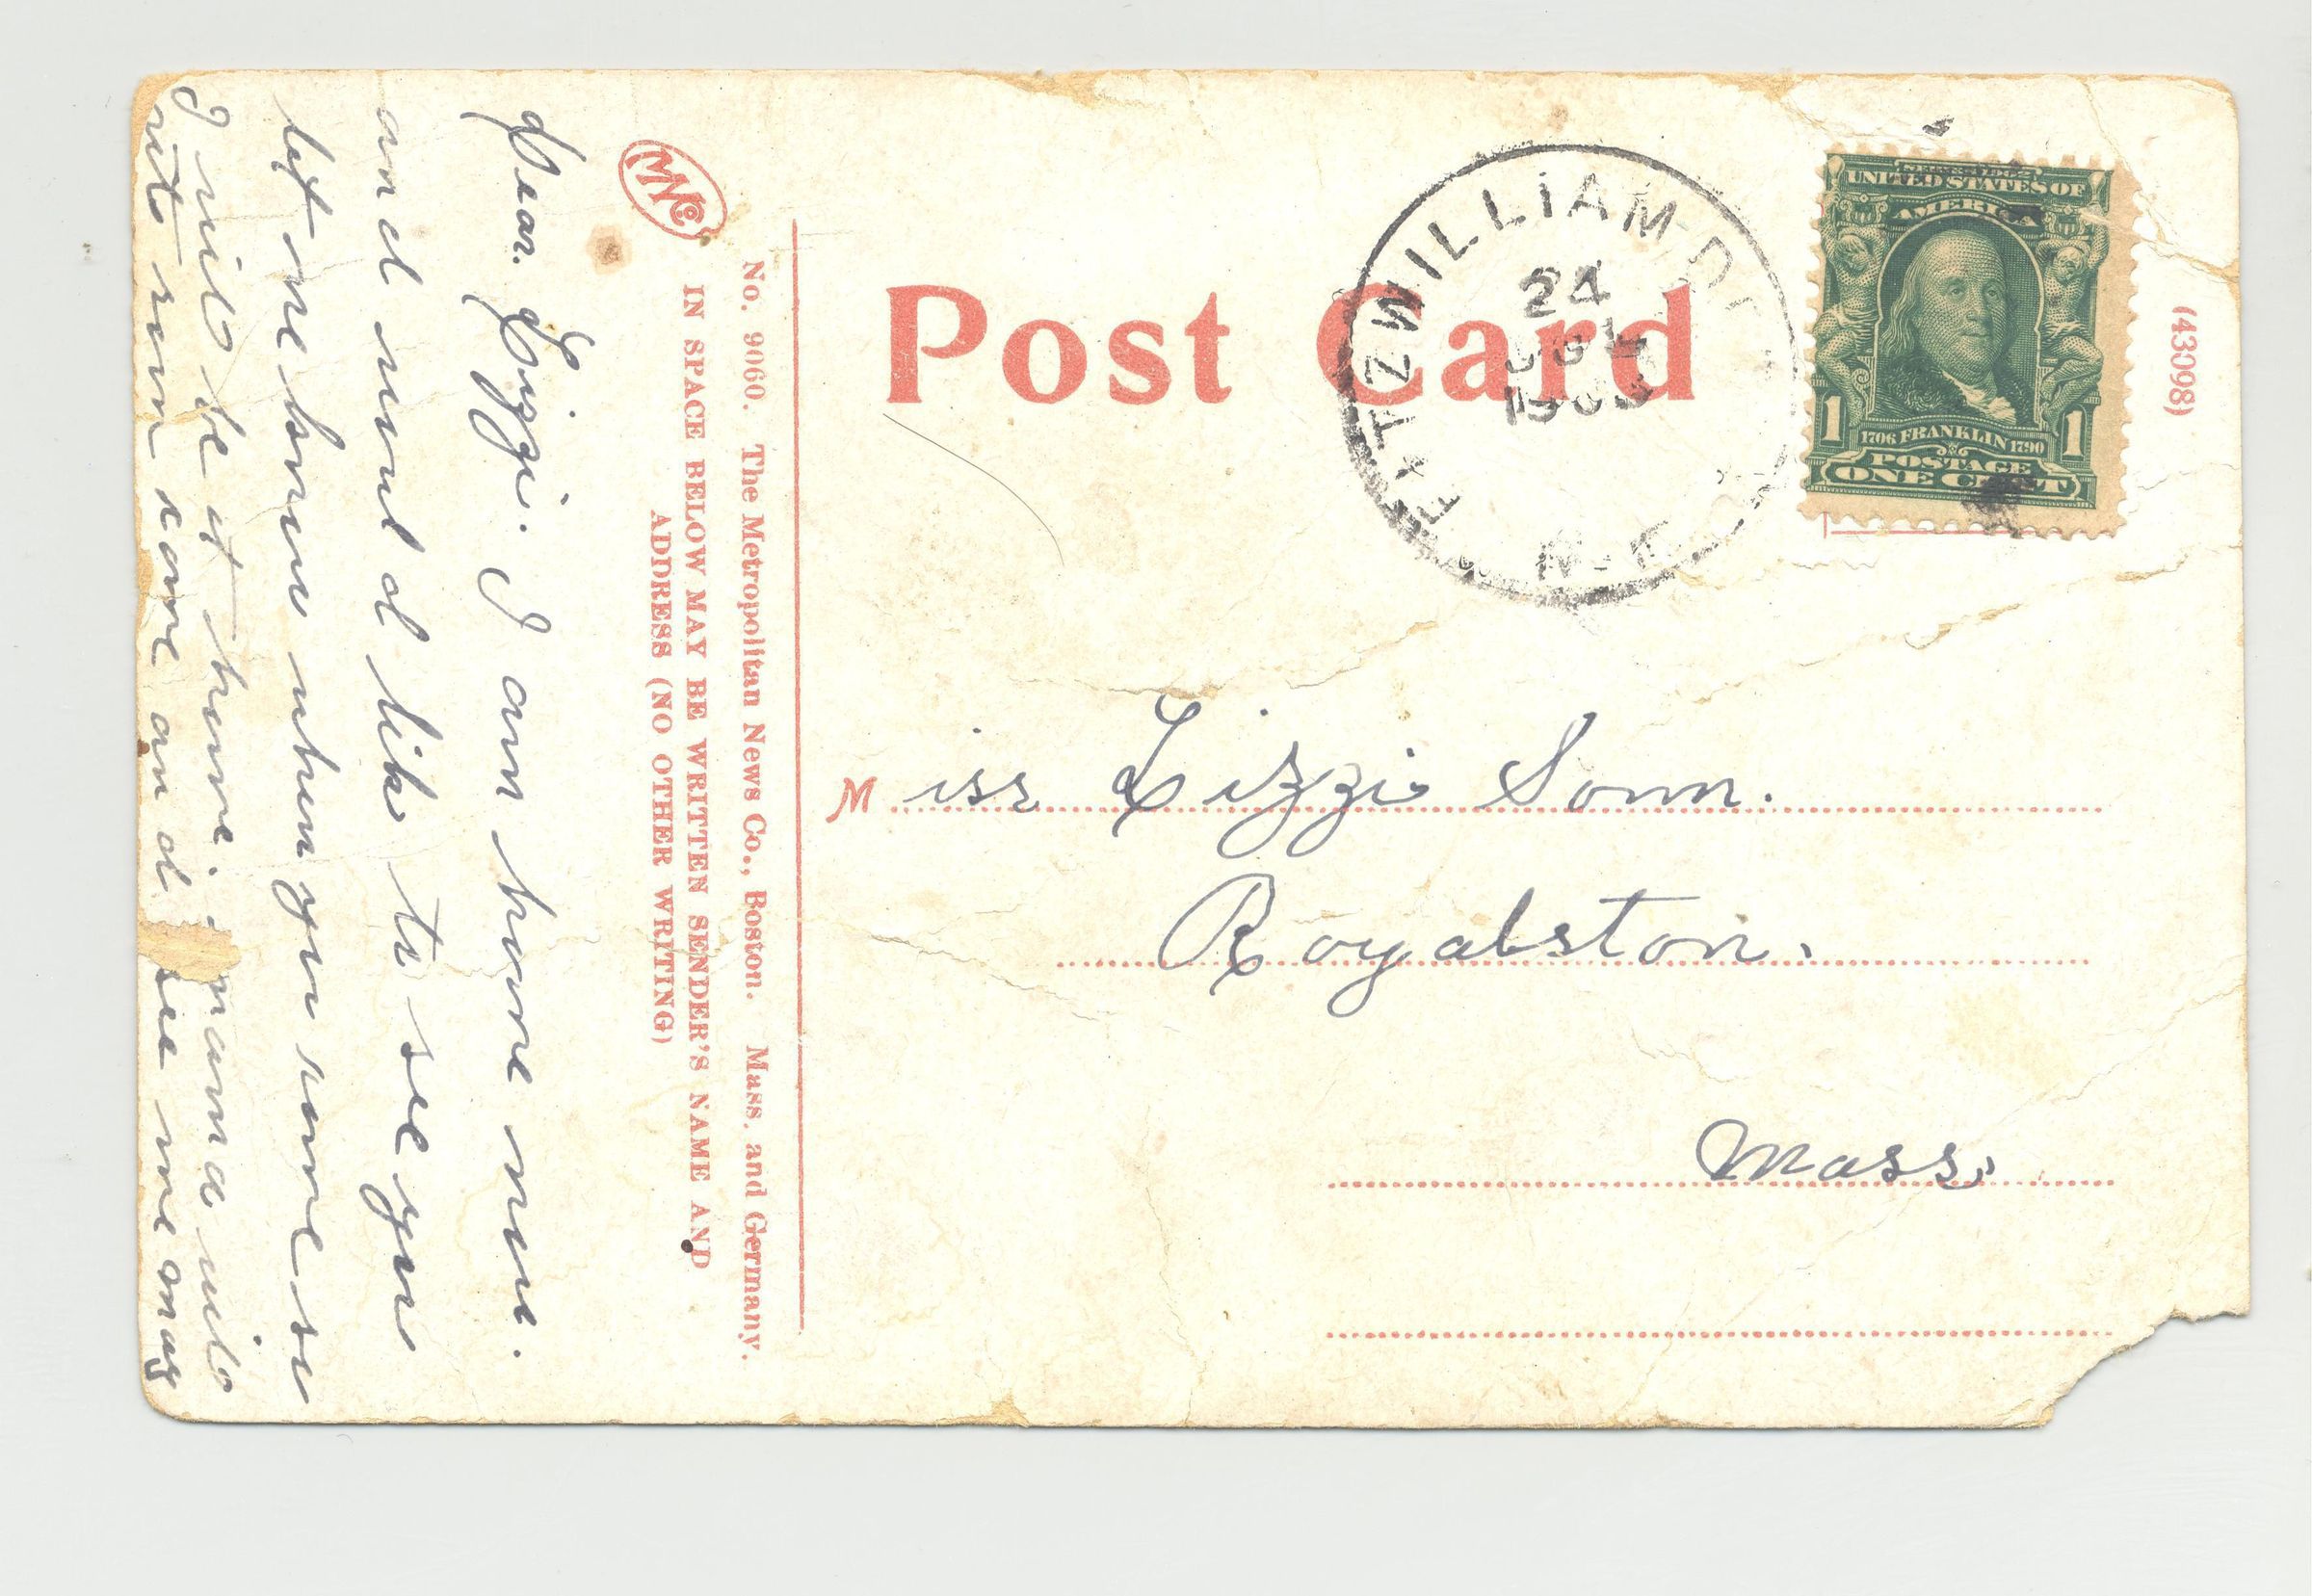 Post Card
FITZWILLIAM
24
UNITED STATES OF
AMERICA
1 1706 FRANKLIN 1790 1
POSTAGE
ONE CENT
(43098)
Miss Lizzie Sonn.
Royalston.
Mass.
No. 9060. The Metropolitan News Co., Boston. Mass. and Germany.
IN SPACE BELOW MAY BE WRITTEN SENDER'S NAME AND
ADDRESS (NO OTHER WRITING)
MNCo
Dear Lizzie. I am home now.
and would like to see you
let me know when you come so
I will be at home. mama will
rite soon come and see me may